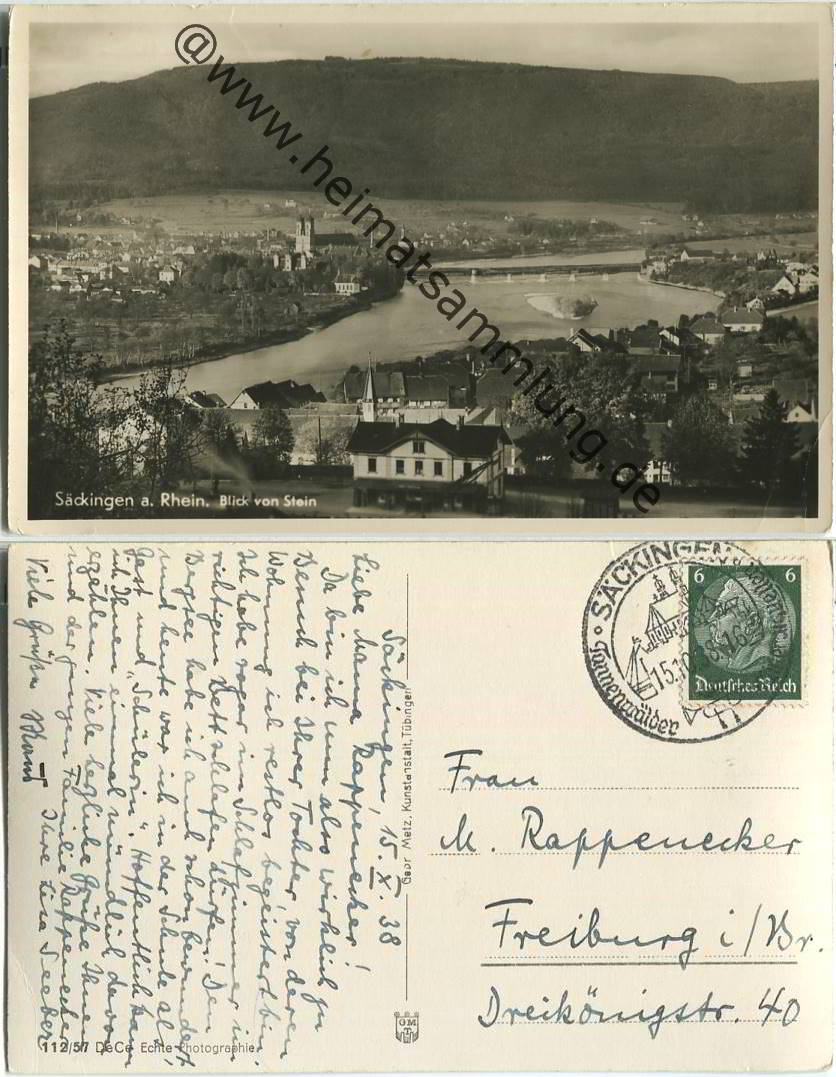 @www.heimatsammlung.de
Säckingen a. Rhein. Blick von Stein
Säckingen, 15. X. 38
Liebe Mama Rappenecker!
Da bin ich nun also wirklich zu
Besuch bei Ihrer Tochter, von deren
Wohnung ich restlos begeistert bin.
Ich habe sogar im Schlafzimmer in
richtigen Bett schlafen dürfen! Den
Bergsee habe ich auch schon bewundert
und heute war ich in der Schule als
Gast und „Schülerin". Hoffentlich kann
ich Ihnen einmal mündlich davon
erzählen. Viele herzliche Grüße Ihnen
und der jungen Familie Rappenecker
Ihre Lisa Seeber
Viele Grüße
Geor Metz, Kunstanstalt, Tübingen
GM
T
112/57 DeCe Echte Photographie
SÄCKINGEN
Tannenwälder
15.10.
6 6
Deutsches Reich
Frau
M. Rappenecker
Freiburg i/Br.
Dreikönigstr. 40